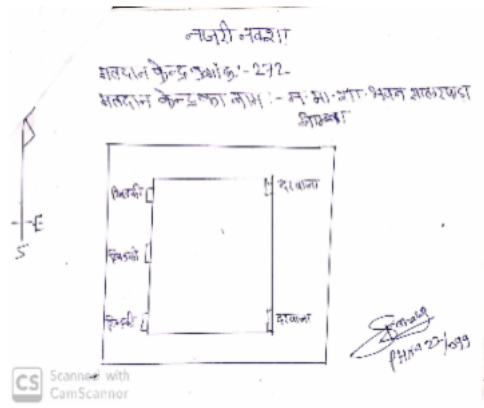 नजरी नक्शा
मतदान केन्द्र क्रमांक :- 272
मतदान केन्द्र का नाम :- न. मा. शा. भवन
खिड़की
दरवाजा
खिड़की
खिड़की
दरवाजा
E
S
CS Scanned with
CamScanner